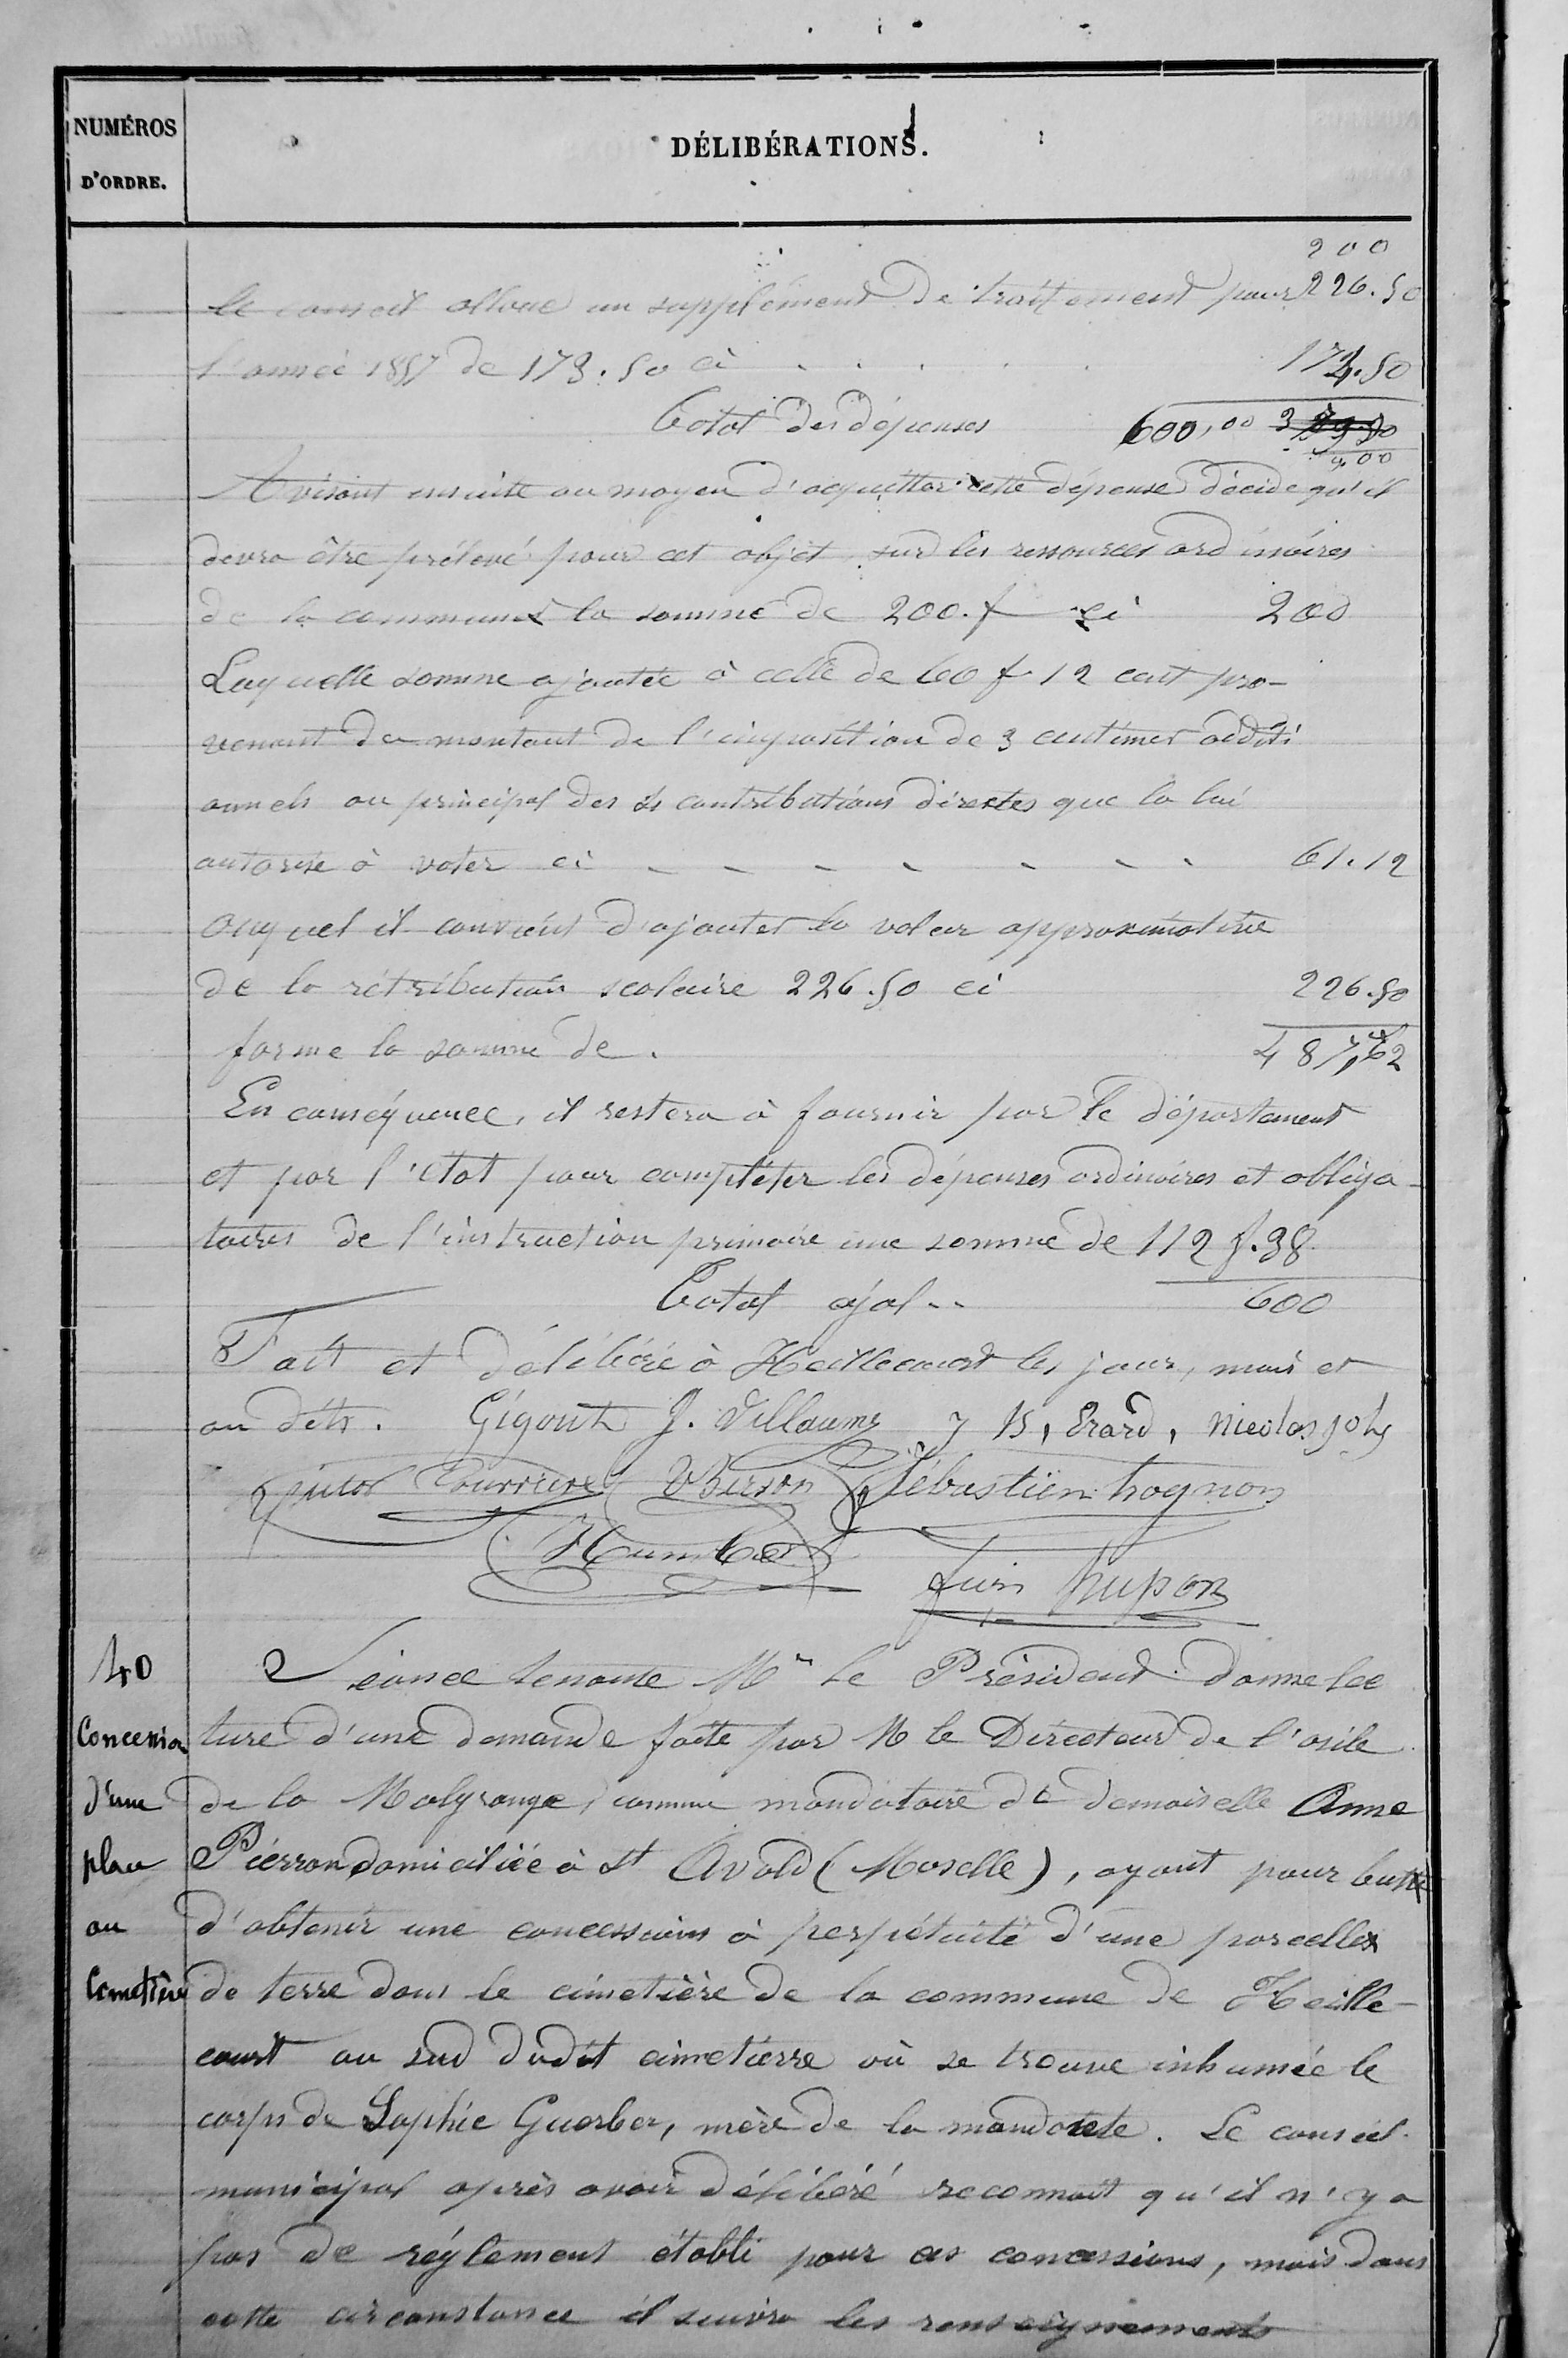 NUMÉROS
D'ORDRE.
DÉLIBÉRATIONS.
200
le conseil alloue un supplément de traitement pour 226.50
l'année 1857 de 173.50 ci . . . . . 173.50
Total des dépenses 600,00
400
Avisant ensuite au moyen d'acquitter cette dépense décide qu'il
devra être prélevé pour cet objet sur les ressources ordinaires
de la commune la somme de 200.f ci 200
Laquelle somme ajoutée à celle de 60 f 12 cent pro-
venant du montant de l'imposition de 3 centimes additi
onnels au principal des 4 contributions directes que la loi
autorise à voter ci - - - - - - - 61.12
auquel il convient d'ajouter la valeur approximative
de la rétribution scolaire 226.50 ci 226.50
forme la somme de . 487,62
En conséquence, il restera à fournir par le département
et par l'etat pour compléter les dépenses ordinaires et obliga-
toires de l'instruction primaire une somme de 112 f.38
Total égal .. 600
Fait et délibéré à Heillecourt les jour, mois et
an dits. Gigout J. Villaume J B, Erard, Nicolas joly
Victor Courrier Sébastien trognon
Humbert
40
Séance tenante Mr le Président donne lec
Concession
ture d'une demande faite par M le Directeur de l'asile
d'une
de la Malgrange, comme mandataire de demoiselle Anne
place
Pierron domiciliée à St Avold (Moselle), ayant pour butte
au
d'obtenir une concession à perpétuité d'une parcelle
Cemetière
de terre dans le cimetière de la commune de Heille-
court au sud dudit cimetierre où se trouve inhumée le
corps de Sophie Guerber, mère de la mandante. Le conseil
municipal après avoir délibéré reconnait qu'il n'y a
pas de réglement établi pour ces concessions, mais dans
cette circonstance il suivra les renseignements